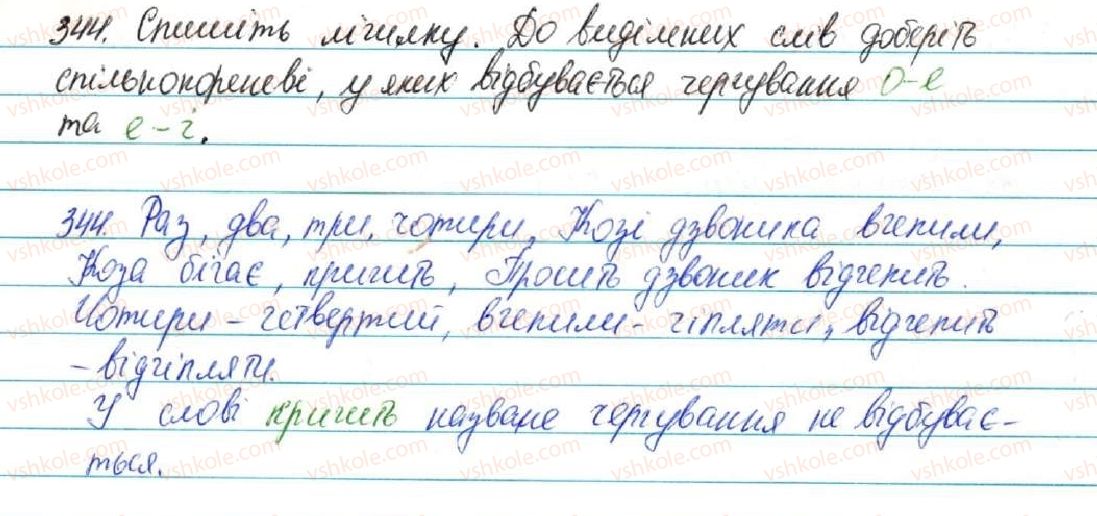 344. Спишіть лічилку. До виділених слів доберіть
спільнокореневі, у яких відбувається чергування о-е
та е-і.
344. Раз, два, три, чотири, Козі дзвоника вчепили,
Коза бігає, кричить, Просить дзвоник відчепить.
Чотири - четвертий, вчепили - чіпляти, відчепить
- відчіпляти.
У слові кричить назване чергування не відбуває-
ться.